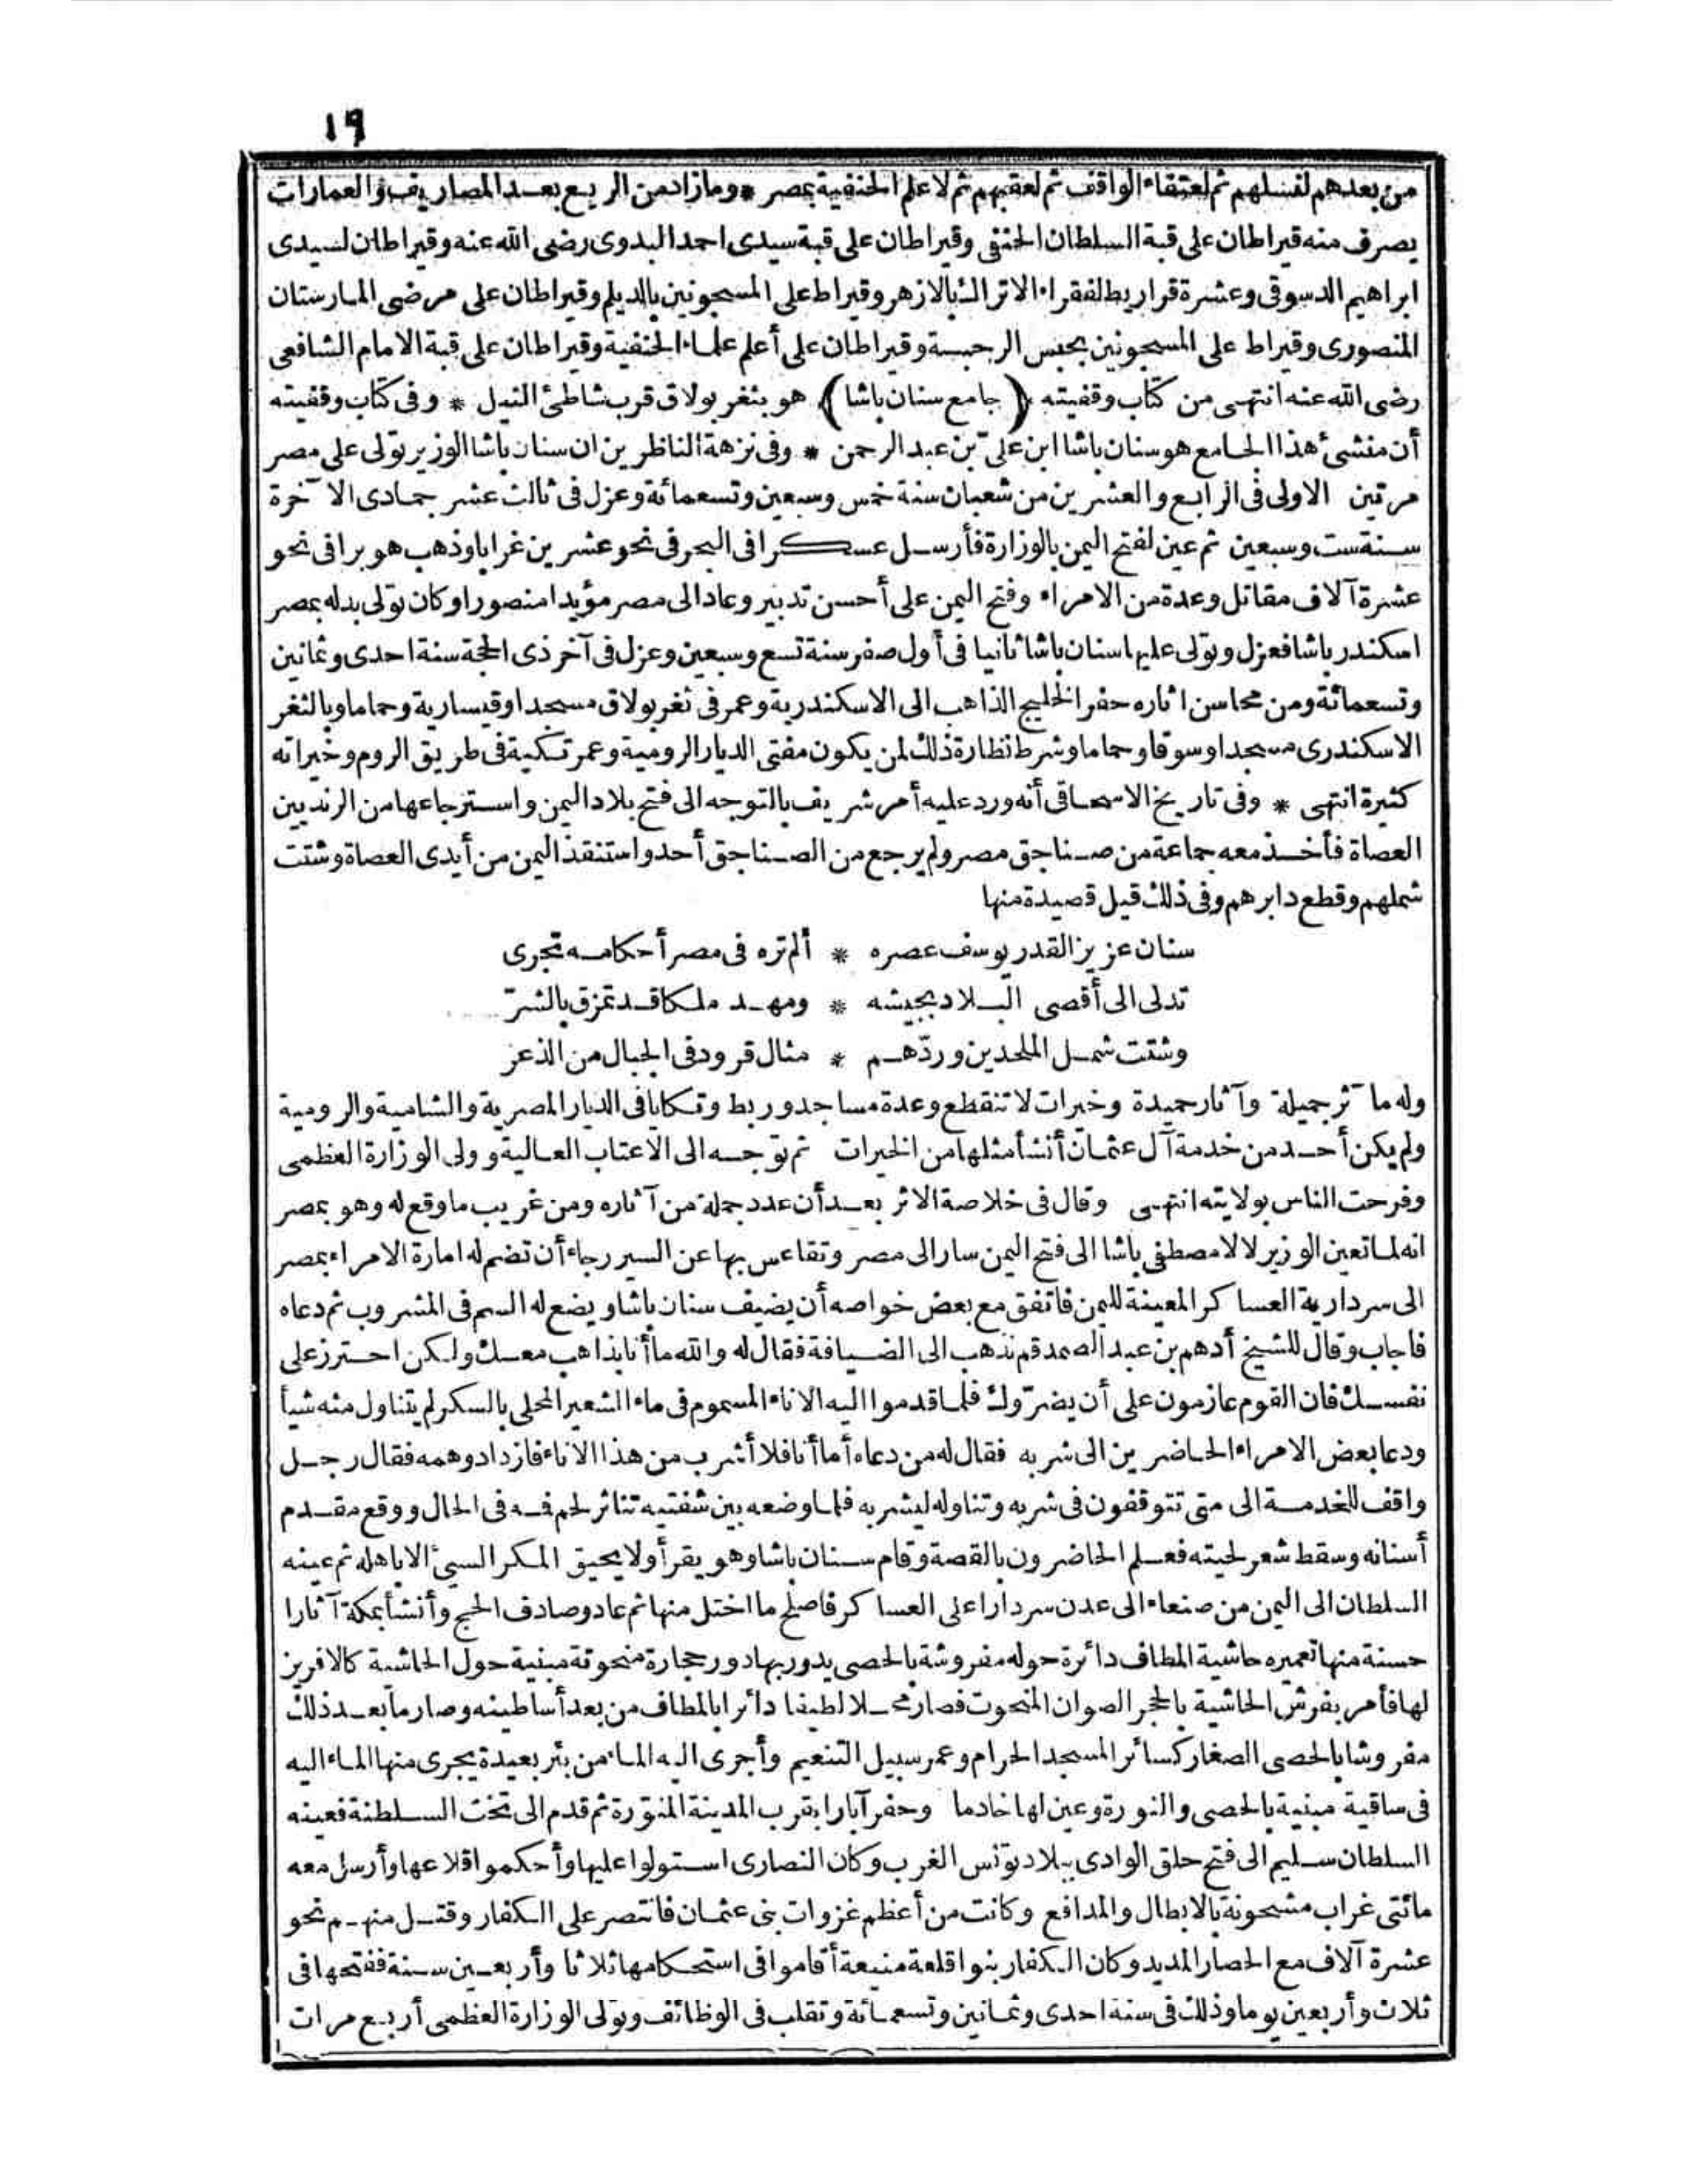 ١٩
من بعدهم لنسلهم ثم لعتقاء الواقف ثم لعقبهم ثم لاعلم الحنفية بمصر * ومازاد من الريع بعد المصاريف والعمارات
يصرف منه قيراطان على قبة السلطان الحنفى وقيراطان على قبة سيدى احمد البدوى رضى الله عنه وقيراطان لسيدى
ابراهيم الدسوقى وعشرة قراريط لفقراء الاتراك بالازهر وقيراط على المسجونين بالديلم وقيراطان على مرضى المارستان
المنصورى وقيراط على المسجونين بحبس الرحبة وقيراطان على أعلم علماء الحنفية وقيراطان على قبة الامام الشافعى
رضى الله عنه انتهى من كتاب وقفيته (جامع سنان باشا) هو بثغر بولاق قرب شاطئ النيل * وفى كتاب وقفيته
أن منشئ هذا الجامع هو سنان باشا ابن على بن عبد الرحمن * وفى نزهة الناظرين ان سنان باشا الوزير تولى على مصر
مرتين الاولى فى الرابع والعشرين من شعبان سنة خمس وسبعين وتسعمائة وعزل فى ثالث عشر جمادى الآخرة
سنة ست وسبعين ثم عين لفتح اليمن بالوزارة فأرسل عسكرا فى البحر فى نحو عشرين غرابا وذهب هو برا فى نحو
عشرة آلاف مقاتل وعدة من الامراء وفتح اليمن على أحسن تدبير وعاد الى مصر مؤيدا منصورا وكان تولى بدله بمصر
اسكندر باشا فعزل وتولى عليها سنان باشا ثانيا فى أول صفر سنة تسع وسبعين وعزل فى آخر ذى الحجة سنة احدى وثمانين
وتسعمائة ومن محاسن اثاره حفر الخليج الذاهب الى الاسكندرية وعمر فى ثغر بولاق مسجدا وقيسارية وحماما وبالثغر
الاسكندرى مسجدا وسوقا وحماما وشرط نظارة ذلك لمن يكون مفتى الديار الرومية وعمر تكية فى طريق الروم وخيراته
كثيرة انتهى * وفى تاريخ الاسحاقى أنه ورد عليه أمر شريف بالتوجه الى فتح بلاد اليمن واسترجاعها من الزنديين
العصاة فأخذ معه جماعة من صناجق مصر ولم يرجع من الصناجق أحد واستنقذ اليمن من أيدى العصاة وشتت
شملهم وقطع دابرهم وفى ذلك قيل قصيدة منها
سنان عزيز القدر يوسف عصره * ألم تره فى مصر أحكامه تجرى
تدلى الى أقصى البلاد بجيشه * ومهد ملكا قد تمزق بالشرّ
وشتت شمل الملحدين وردّهم * مثال قرود فى الجبال من الذعر
وله مآثر جميلة وآثار حميدة وخيرات لا تنقطع وعدة مساجد وربط وتكايا فى الديار المصرية والشامية والرومية
ولم يكن أحد من خدمة آل عثمان أنشأ مثلها من الخيرات ثم توجه الى الاعتاب العالية وولى الوزارة العظمى
وفرحت الناس بولايته انتهى وقال فى خلاصة الاثر بعد أن عدد جملة من آثاره ومن غريب ما وقع له وهو بمصر
انه لما تعين الوزير لالا مصطفى باشا الى فتح اليمن سار الى مصر وتقاعس بها عن السير رجاء أن تضم له امارة الامراء بمصر
الى سردارية العساكر المعينة لليمن فاتفق مع بعض خواصه أن يضيف سنان باشا ويضع له السم فى المشروب ثم دعاه
فاجاب وقال للشيخ أدهم بن عبد الصمد قم نذهب الى الضيافة فقال له والله ما أنا بذاهب معك ولكن احترز على
نفسك فان القوم عازمون على أن يضرّوك فلما قدموا اليه الاناء المسموم فى ماء الشعير المحلى بالسكر لم يتناول منه شيأ
ودعا بعض الامراء الحاضرين الى شربه فقال له من دعاه أما أنا فلا أشرب من هذا الاناء فازداد وهمه فقال رجل
واقف للخدمة الى متى تتوقفون فى شربه وتناوله ليشربه فلما وضعه بين شفتيه تناثر لحم فمه فى الحال ووقع مقدم
أسنانه وسقط شعر لحيته فعلم الحاضرون بالقصة وقام سنان باشا وهو يقرأ ولا يحيق المكر السيئ الا باهله ثم عينه
السلطان الى اليمن من صنعاء الى عدن سردارا على العساكر فاصلح ما اختل منها ثم عاد وصادف الحج وأنشأ بمكة آثارا
حسنة منها تعميره حاشية المطاف دائرة حوله مفروشة بالحصى يدور بها دور حجارة منحوتة مبنية حول الحاشية كالافريز
لها فأمر بفرش الحاشية بالحجر الصوان المنحوت فصار محلا لطيفا دائرا بالمطاف من بعد أساطينه وصار ما بعد ذلك
مفروشا بالحصى الصغار كسائر المسجد الحرام وعمر سبيل التنعيم وأجرى اليه الماء من بئر بعيدة يجرى منها الماء اليه
فى ساقية مبنية بالحصى والنورة وعين لها خادما وحفر آبارا بقرب المدينة المنوّرة ثم قدم الى تخت السلطنة فعينه
السلطان سليم الى فتح حلق الوادى ببلاد تونس الغرب وكان النصارى استولوا عليها وأحكموا قلاعها وأرسل معه
مائتى غراب مشحونة بالابطال والمدافع وكانت من أعظم غزوات بنى عثمان فانتصر على الكفار وقتل منهم نحو
عشرة آلاف مع الحصار المديد وكان الكفار بنوا قلعة منيعة أقاموا فى استحكامها ثلاثا وأربعين سنة ففتحها فى
ثلاث وأربعين يوما وذلك فى سنة احدى وثمانين وتسعمائة وتقلب فى الوظائف وتولى الوزارة العظمى أربع مرات